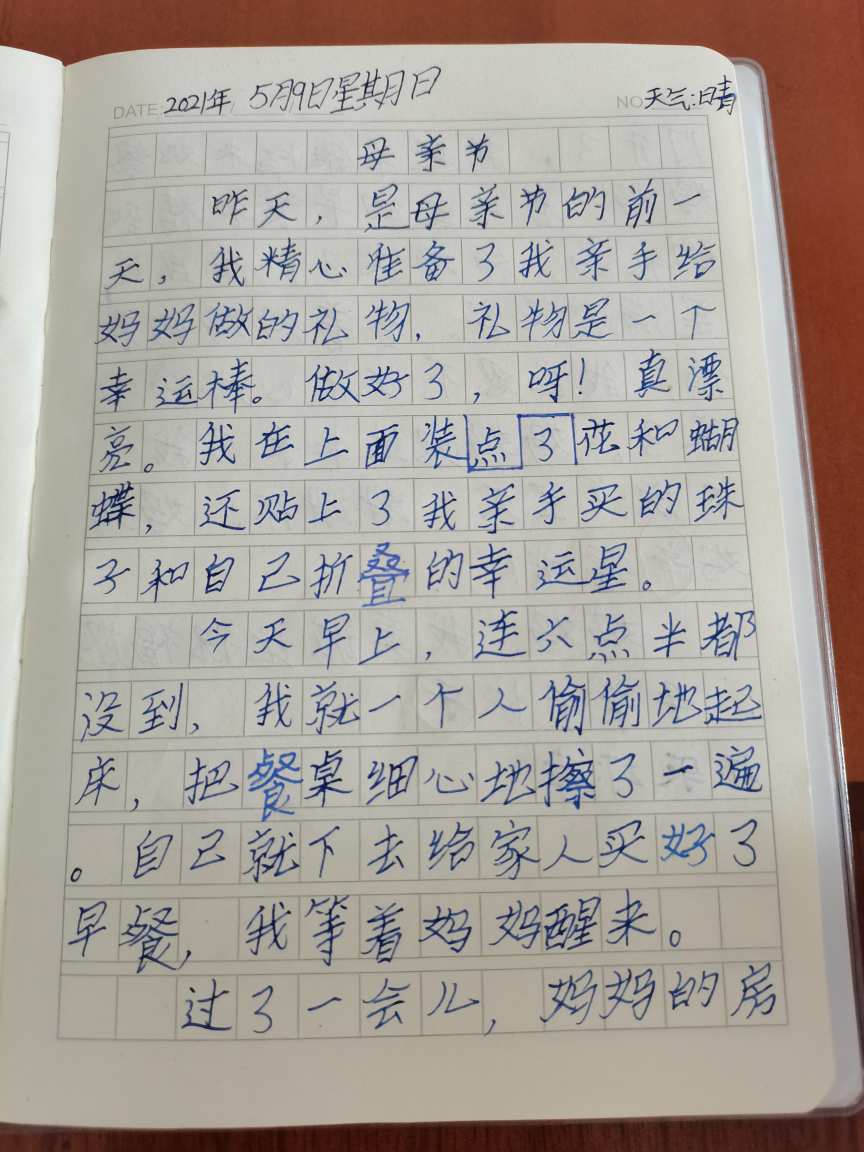 DATE 2021年 5月9日星期日 NO 天气:晴
母亲节
昨天,是母亲节的前一
天,我精心准备了我亲手给
妈妈做的礼物,礼物是一个
幸运棒。做好了,呀!真漂
亮。我在上面装点了花和蝴
蝶,还贴上了我亲手买的珠
子和自己折叠的幸运星。
今天早上,连六点半都
没到,我就一个人偷偷地起
床,把餐桌细心地擦了一遍
。自己就下去给家人买好了
早餐,我等着妈妈醒来。
过了一会儿,妈妈的房